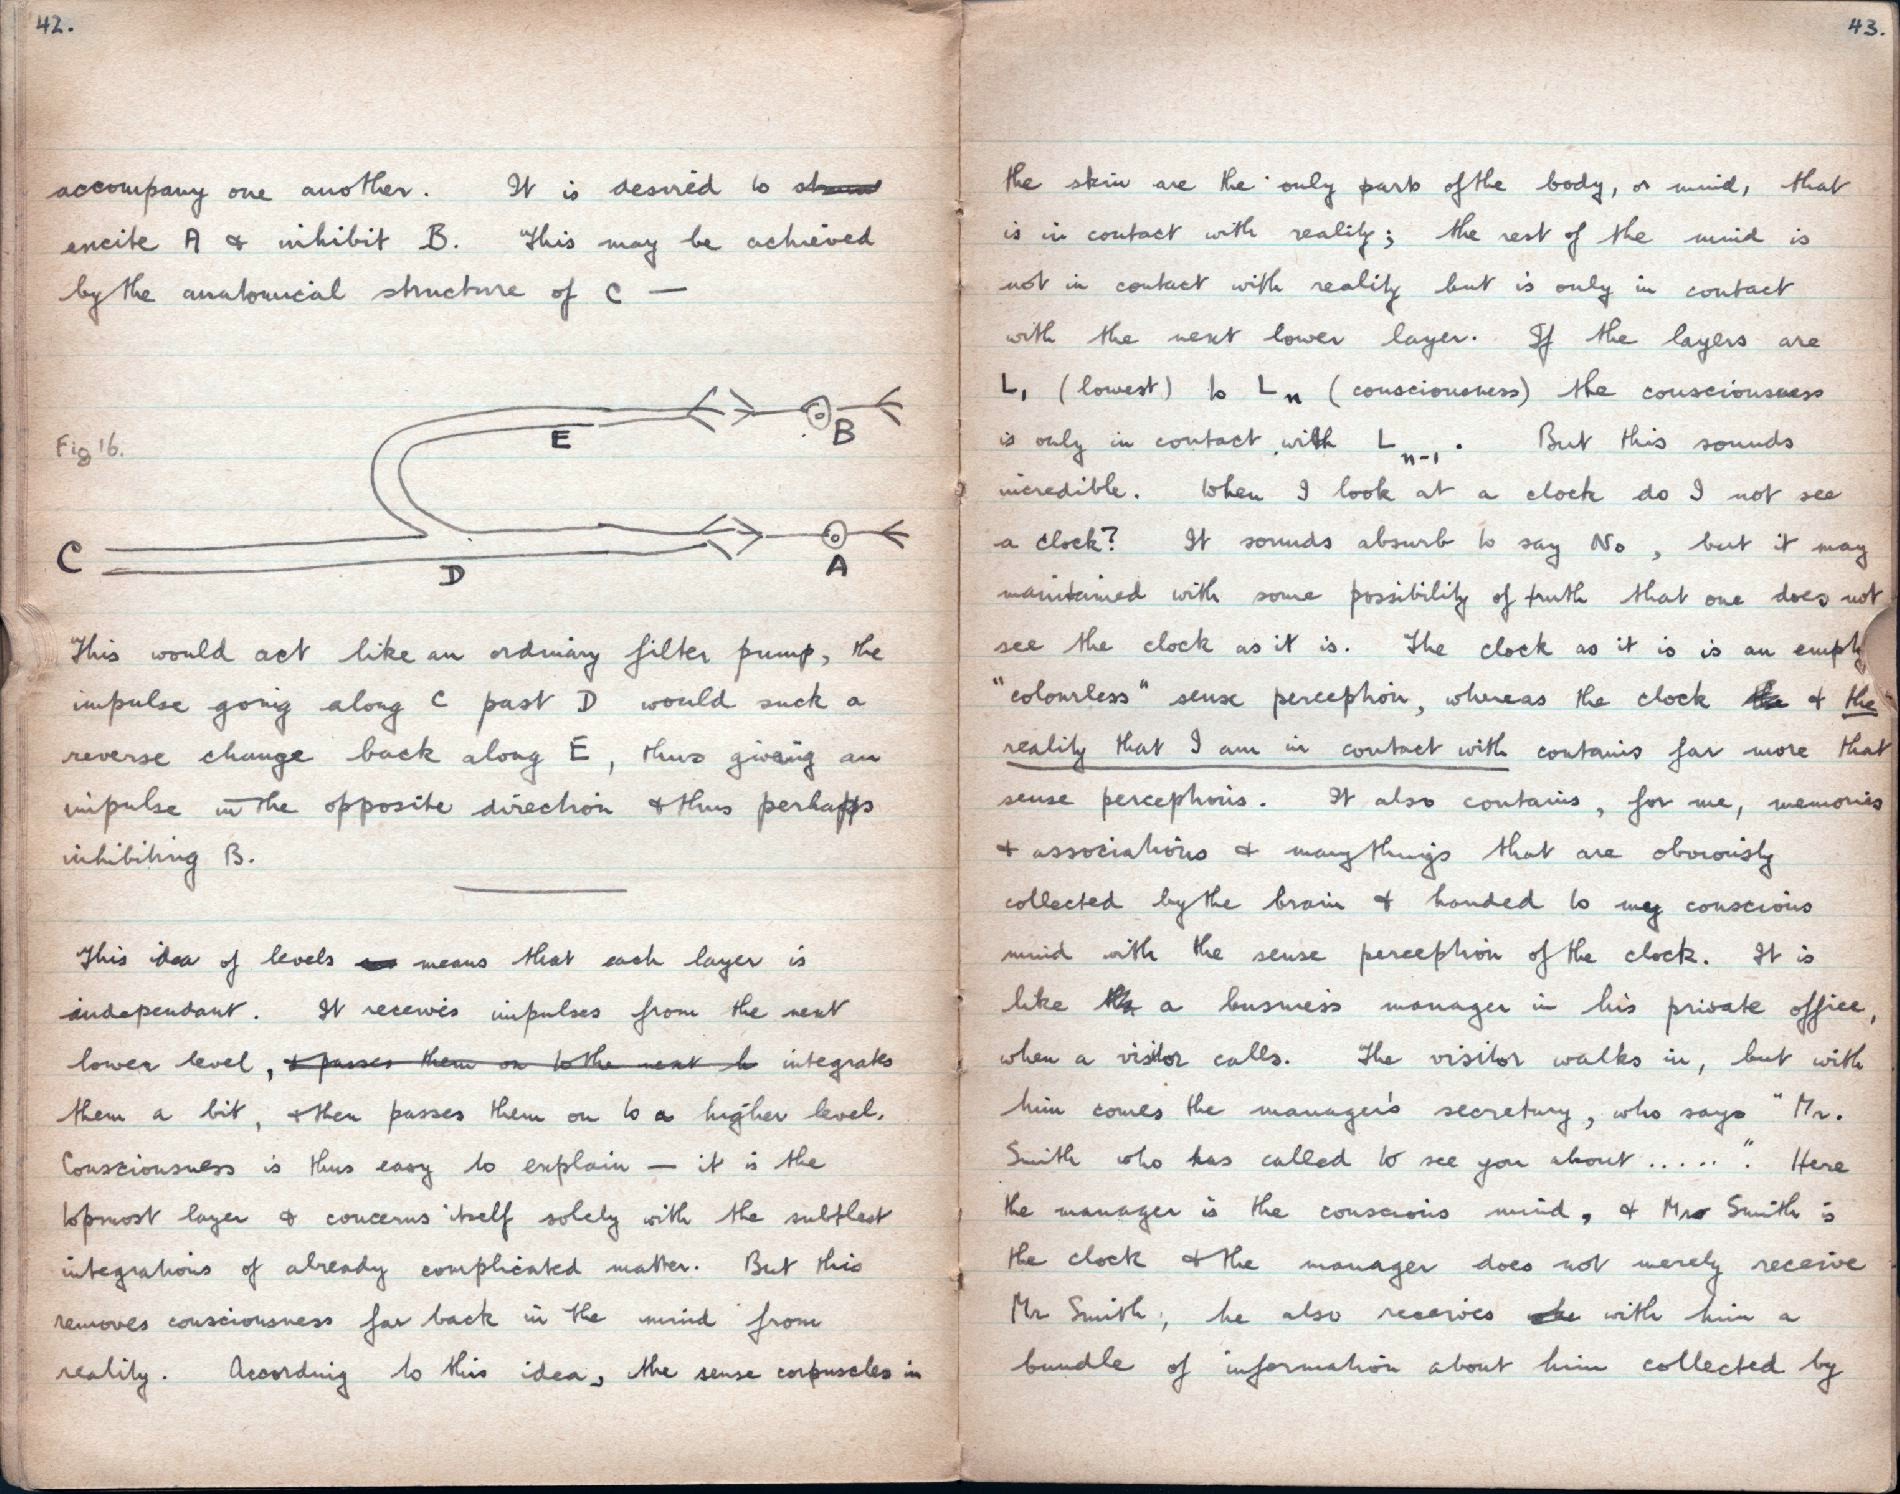 42.
accompany one another. It is desired to
excite A & inhibit B. This may be achieved
by the anatomical structure of C —
Fig 16.
E
B
C
D
A
This would act like an ordinary filter pump, the
impulse going along C past D would suck a
reverse change back along E, thus giving an
impulse in the opposite direction & thus perhaps
inhibiting B.
This idea of levels means that each layer is
independant. It receives impulses from the next
lower level, & passes them on to the next h integrates
them a bit, & then passes them on to a higher level.
Consciousness is thus easy to explain — it is the
topmost layer & concerns itself solely with the subtlest
integrations of already complicated matter. But this
removes consciousness far back in the mind from
reality. According to this idea, the sense corpuscles in
43.
the skin are the only parts of the body, or mind, that
is in contact with reality; the rest of the mind is
not in contact with reality but is only in contact
with the next lower layer. If the layers are
L₁ (lowest) to Lₙ (consciousness) the consciousness
is only in contact with Lₙ₋₁. But this sounds
incredible. When I look at a clock do I not see
a clock? It sounds absurb to say No, but it may
maintained with some possibility of truth that one does not
see the clock as it is. The clock as it is is an empty
"colourless" sense perception, whereas the clock the & the
reality that I am in contact with contains far more that
sense perceptions. It also contains, for me, memories
& associations & many things that are obviously
collected by the brain & handed to my conscious
mind with the sense perception of the clock. It is
like the a business manager in his private office,
when a visitor calls. The visitor walks in, but with
him comes the manager's secretary, who says "Mr.
Smith who has called to see you about ......". Here
the manager is the conscious mind, & Mr Smith is
the clock & the manager does not merely receive
Mr Smith, he also receives with him a
bundle of information about him collected by